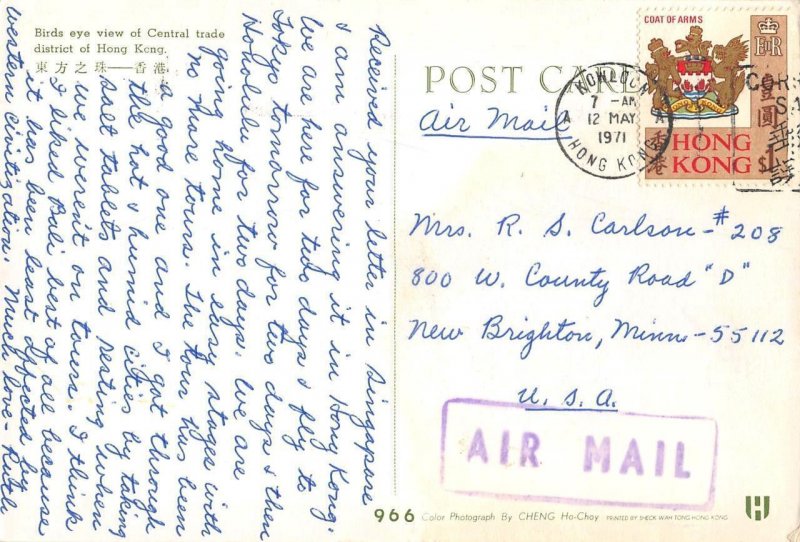 Birds eye view of Central trade
district of Hong Kong.
東方之珠——香港
POST CARD
Air Mail
COAT OF ARMS
EIIR
壹圓
香港
HONG
KONG $1
KOWLOON
7 - AM
12 MAY
1971
A A
HONG KONG
Received your letter in Singapore
I am answering it in Hong Kong.
We are here for two days & fly to
Tokyo tomorrow for two days & then
Honolulu for two days. We are
going home in easy stages with
no more tours. The tour has been
a good one and I got through
the hot & humid cities by taking
salt tablets and resting when
we weren't on tours. I think
I liked Bali best of all because
it has been least affected by
western civilization. Much love - Ruth
Mrs. R. S. Carlson - #208
800 W. County Road "D"
New Brighton, Minn - 55112
U. S. A.
AIR MAIL
966 Color Photograph By CHENG Ho-Choy PRINTED BY SHECK WAH TONG HONG KONG